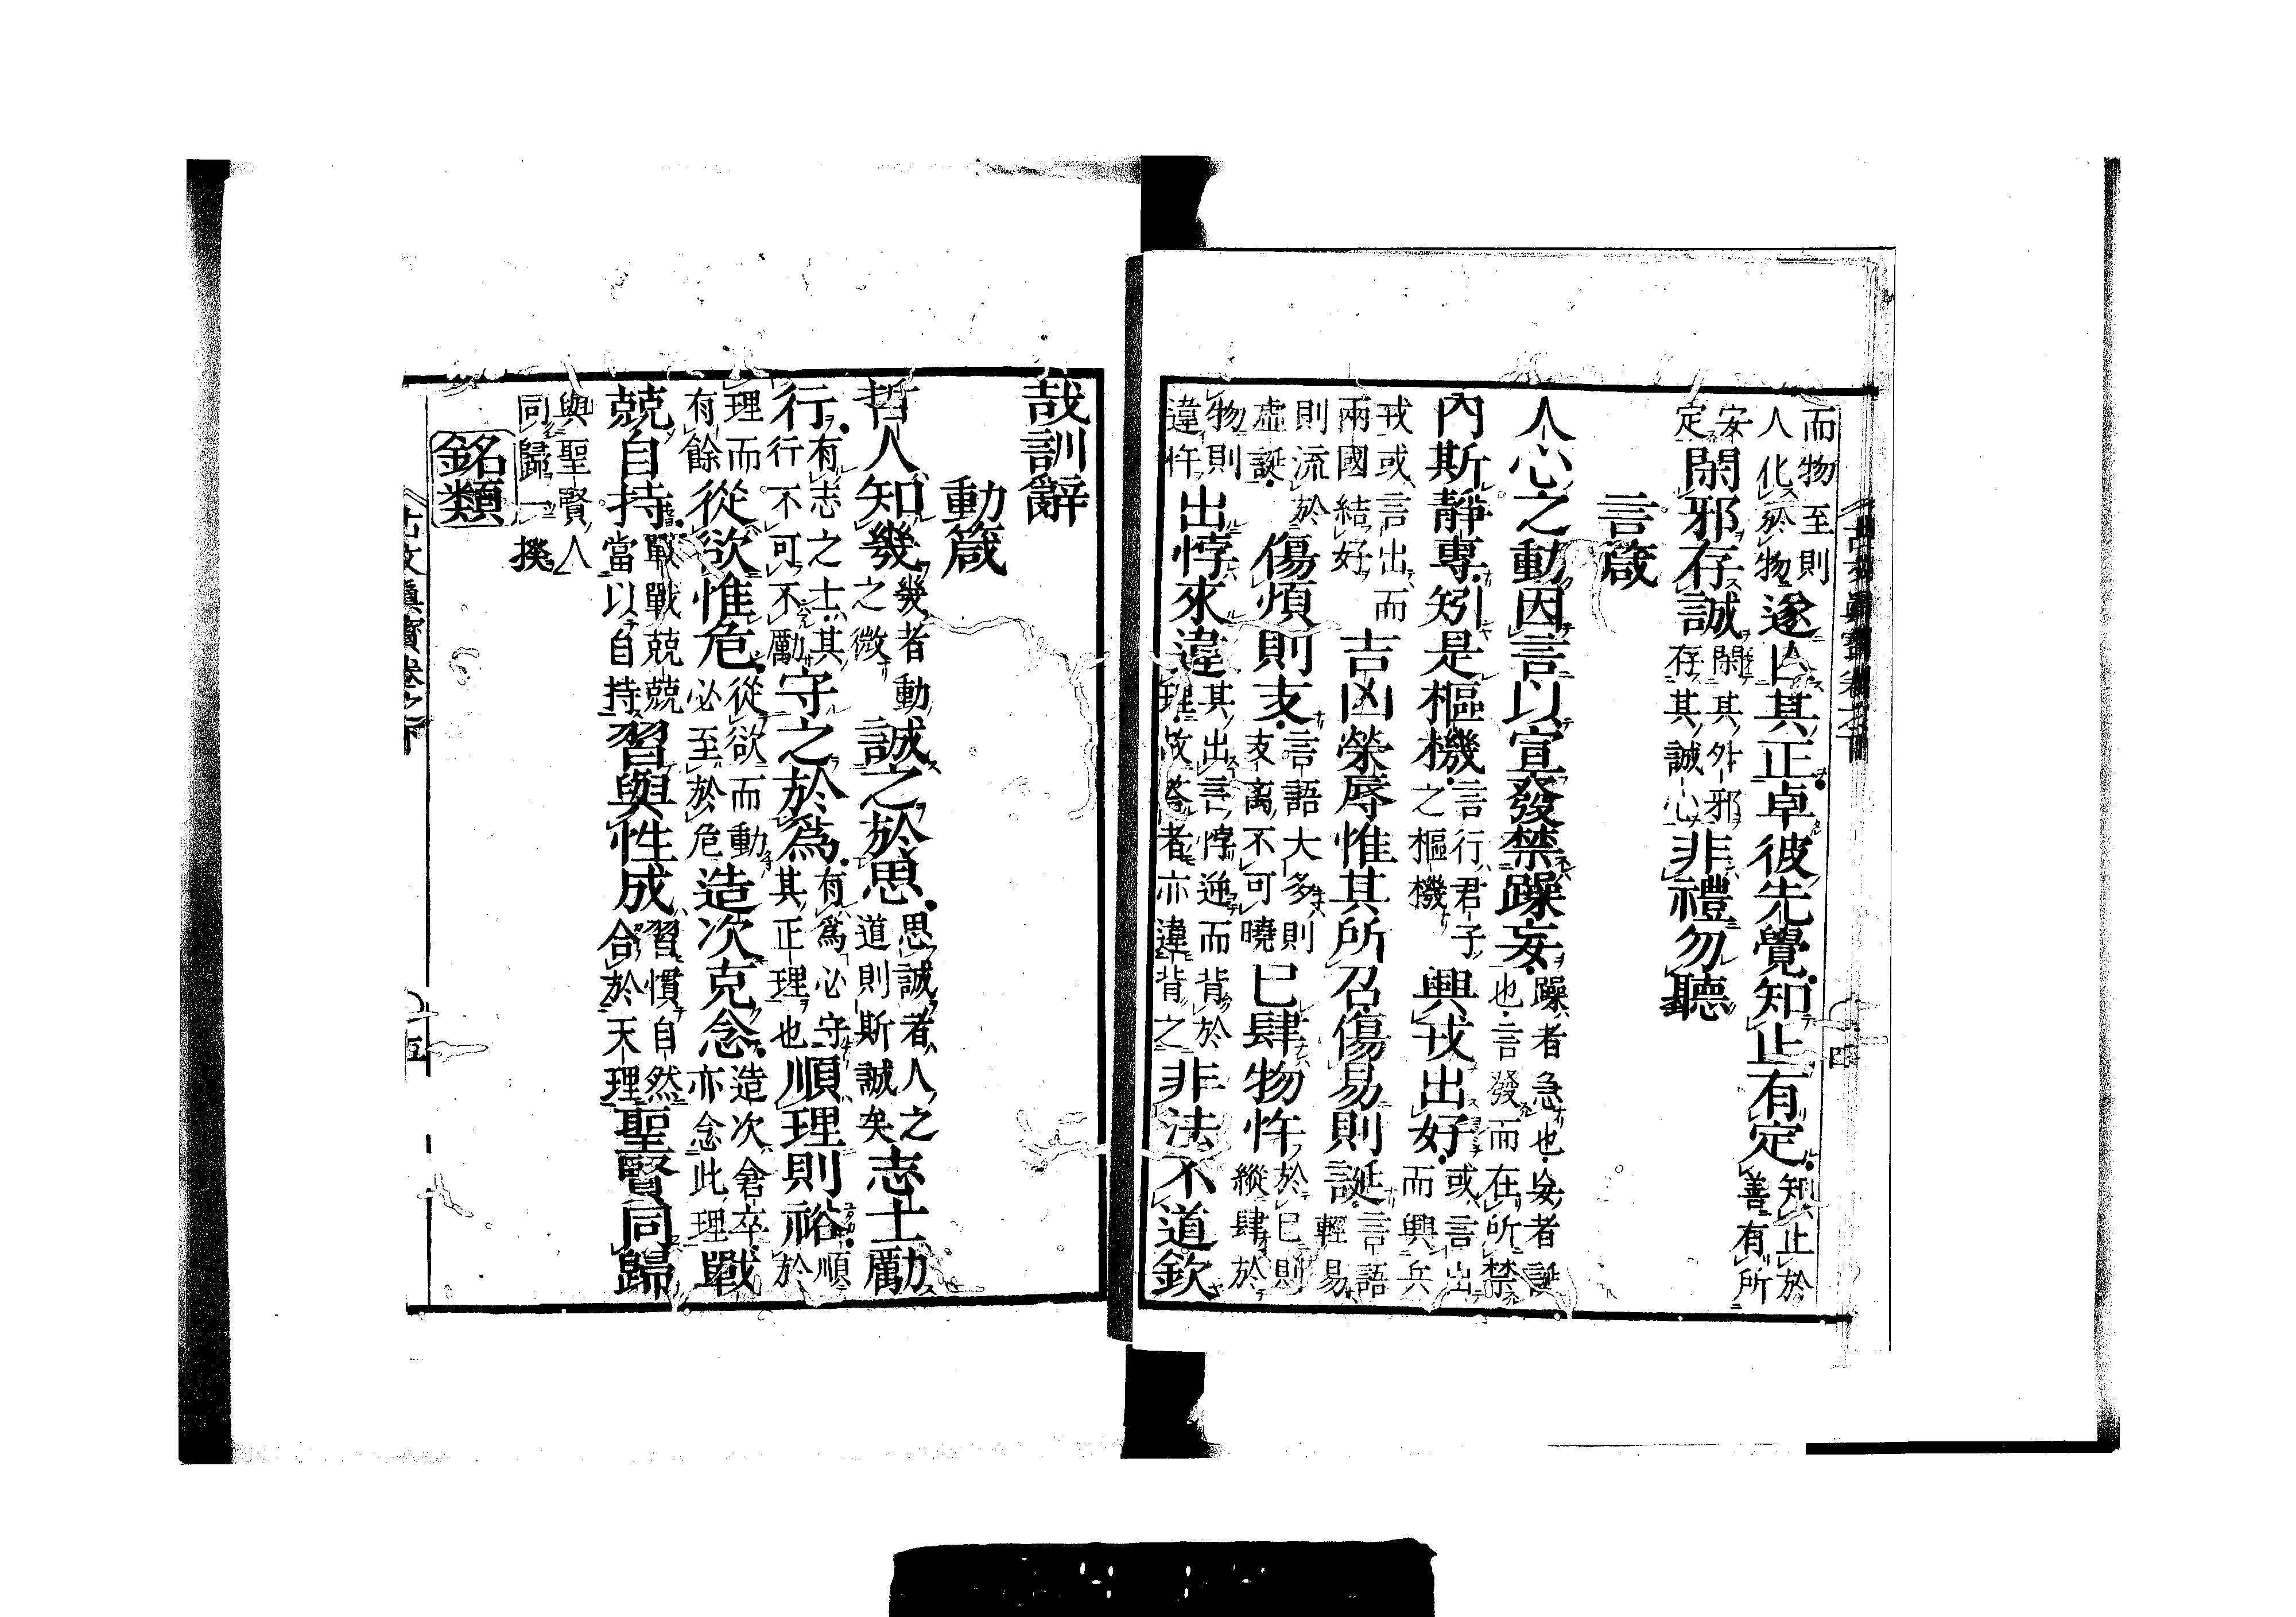 而物至則
人化於物
遂亡其正卓彼先覺知止有定
知止於
善有所
安
定
閑邪存誠
閑其外邪
存其誠心
非禮勿聽
言箴
人心之動因言以宣發禁躁妄
躁者急也妄者誕
也言發而在所禁
內斯靜專矧是樞機
言行君子
之樞機
興戎出好
或言出
而興兵
戎或言出而
兩國結好
吉凶榮辱惟其所召傷易則誕
言語
輕易
則流於
虛誕
傷煩則支
言語大多則
支离不可曉
已肆物忤
於已則
縱肆於
物則
違忤
出悖來違
其出言悖逆而背於
理故答者亦違背之
非法不道欽
哉訓辭
動箴
哲人知幾
幾者動
之微
誠之於思
思誠者人之
道則斯誠矣
志士勵
行
有志之士其
行不可不勵
守之於爲
有爲必守
其正理也
順理則裕
順
於
理而
有餘
從欲惟危
從欲而動
必至於危
造次克念
造次倉卒
亦念此理
戰
兢自持
戰戰兢兢
當以自持
習與性成
習慣自然
合於天理
聖賢同歸
與聖賢人
同歸一揆
銘類
古文眞寶卷之下
五